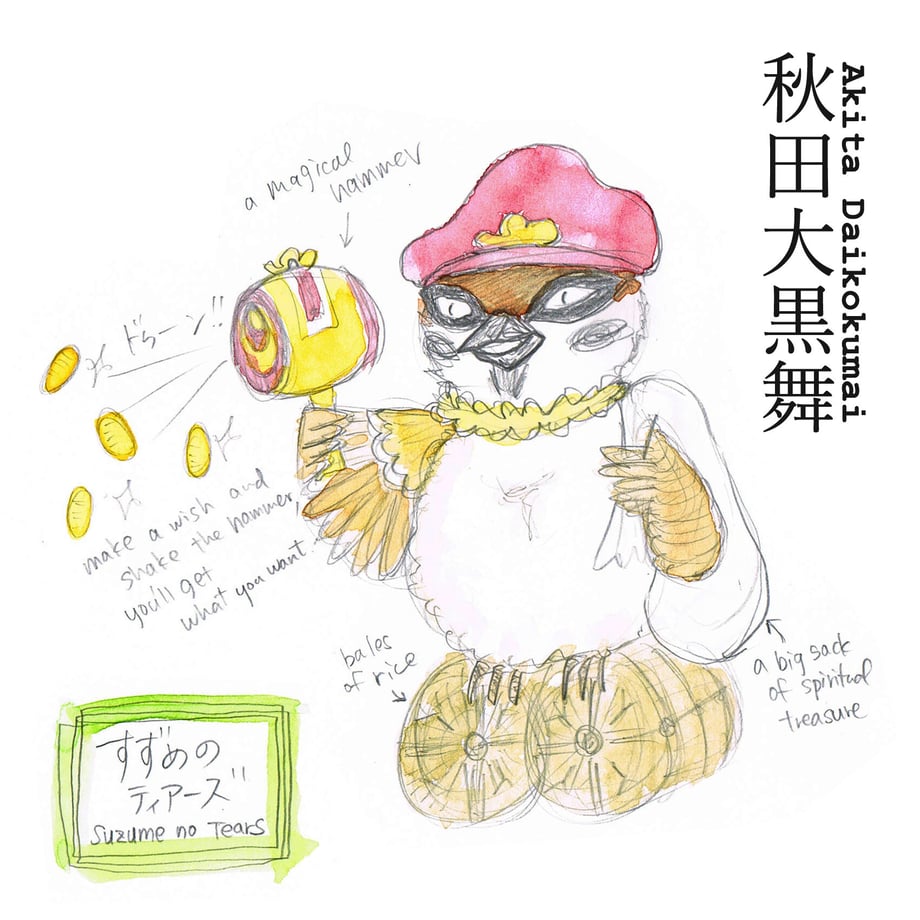 秋田大黒舞
Akita Daikokumai
a magical
hammer
ドゥーン!!
make a wish and
shake the hammer,
you'll get
what you want.
bales
of rice
a big sack
of spiritual
treasure
すずめの
ティアーズ
Suzume no Tears